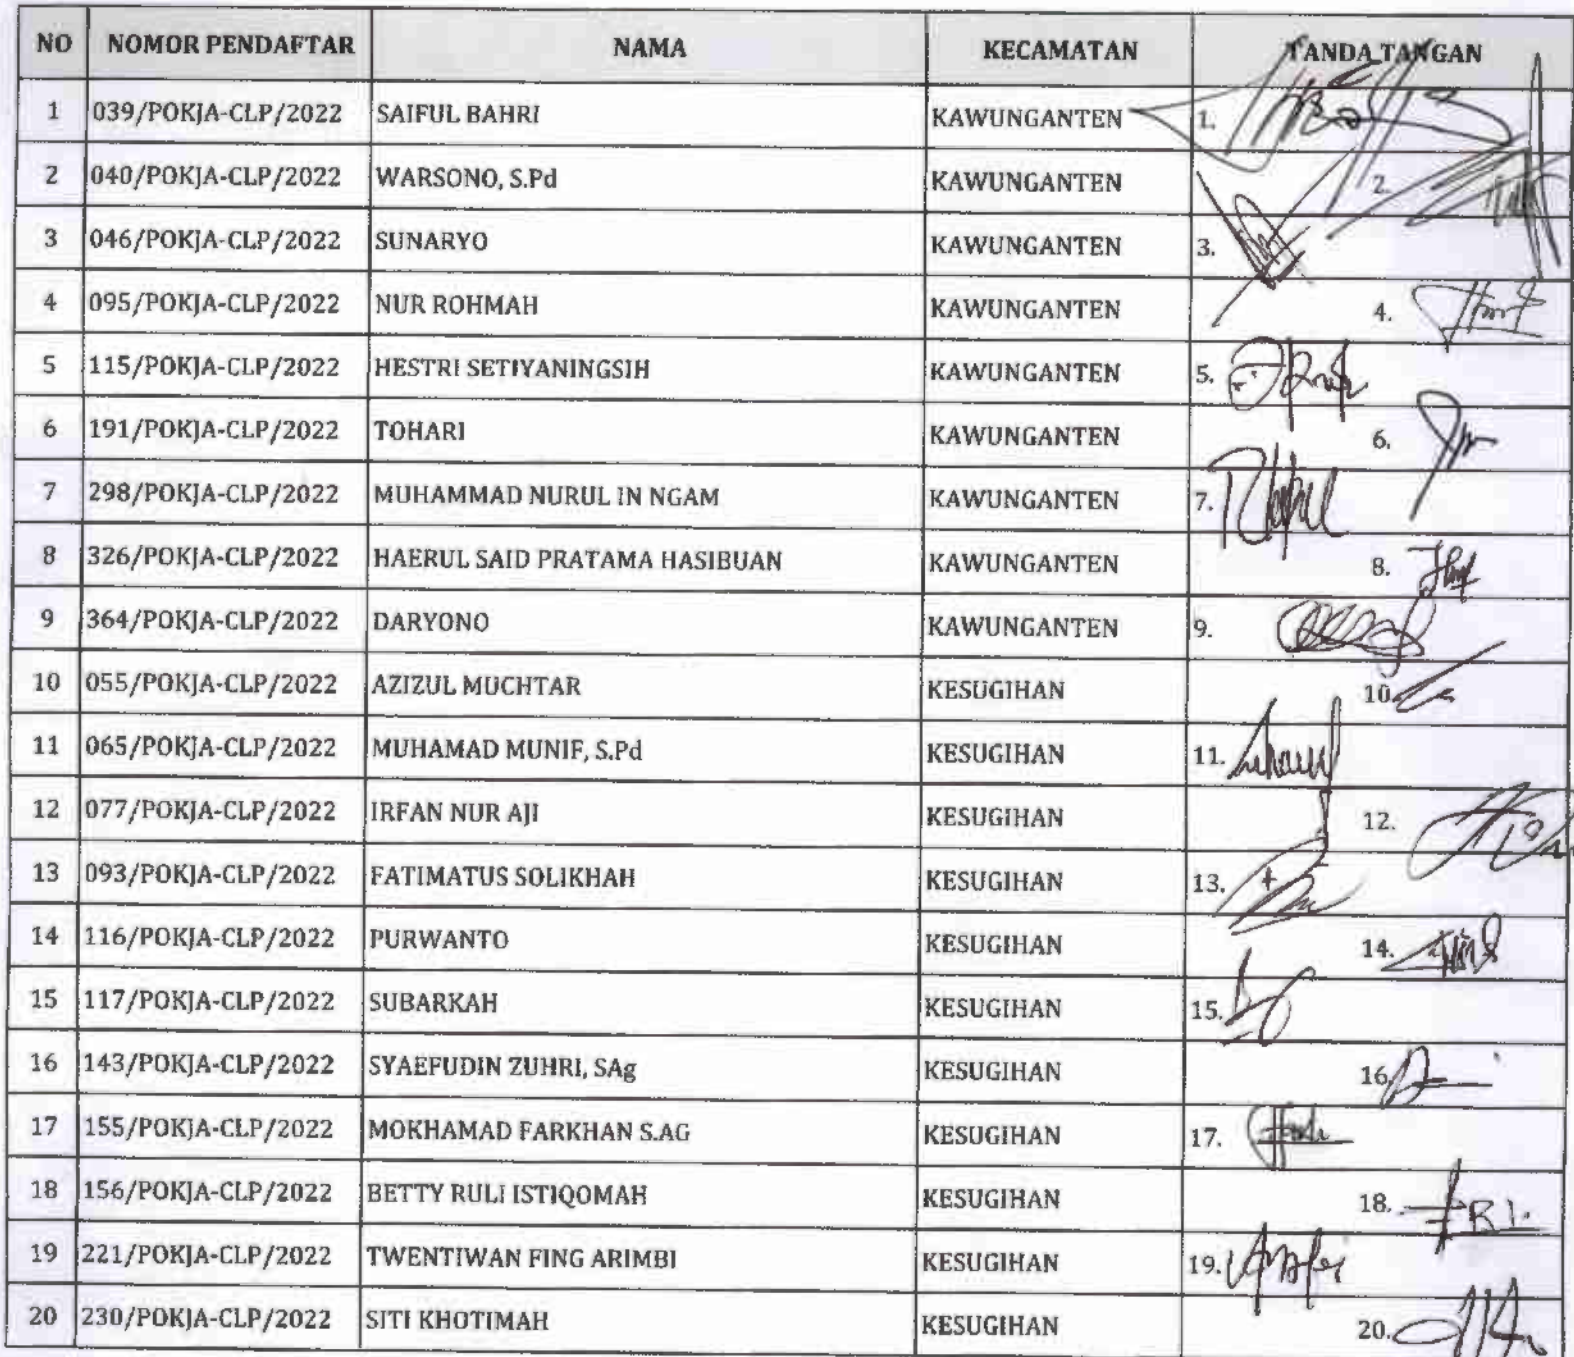 NO NOMOR PENDAFTAR NAMA KECAMATAN TANDA TANGAN
1 039/POKJA-CLP/2022 SAIFUL BAHRI KAWUNGANTEN 1.
2 040/POKJA-CLP/2022 WARSONO, S.Pd KAWUNGANTEN 2.
3 046/POKJA-CLP/2022 SUNARYO KAWUNGANTEN 3.
4 095/POKJA-CLP/2022 NUR ROHMAH KAWUNGANTEN 4.
5 115/POKJA-CLP/2022 HESTRI SETIYANINGSIH KAWUNGANTEN 5.
6 191/POKJA-CLP/2022 TOHARI KAWUNGANTEN 6.
7 298/POKJA-CLP/2022 MUHAMMAD NURUL IN NGAM KAWUNGANTEN 7.
8 326/POKJA-CLP/2022 HAERUL SAID PRATAMA HASIBUAN KAWUNGANTEN 8.
9 364/POKJA-CLP/2022 DARYONO KAWUNGANTEN 9.
10 055/POKJA-CLP/2022 AZIZUL MUCHTAR KESUGIHAN 10.
11 065/POKJA-CLP/2022 MUHAMAD MUNIF, S.Pd KESUGIHAN 11.
12 077/POKJA-CLP/2022 IRFAN NUR AJI KESUGIHAN 12.
13 093/POKJA-CLP/2022 FATIMATUS SOLIKHAH KESUGIHAN 13.
14 116/POKJA-CLP/2022 PURWANTO KESUGIHAN 14.
15 117/POKJA-CLP/2022 SUBARKAH KESUGIHAN 15.
16 143/POKJA-CLP/2022 SYAEFUDIN ZUHRI, SAg KESUGIHAN 16.
17 155/POKJA-CLP/2022 MOKHAMAD FARKHAN S.AG KESUGIHAN 17.
18 156/POKJA-CLP/2022 BETTY RULI ISTIQOMAH KESUGIHAN 18.
19 221/POKJA-CLP/2022 TWENTIWAN FING ARIMBI KESUGIHAN 19.
20 230/POKJA-CLP/2022 SITI KHOTIMAH KESUGIHAN 20.